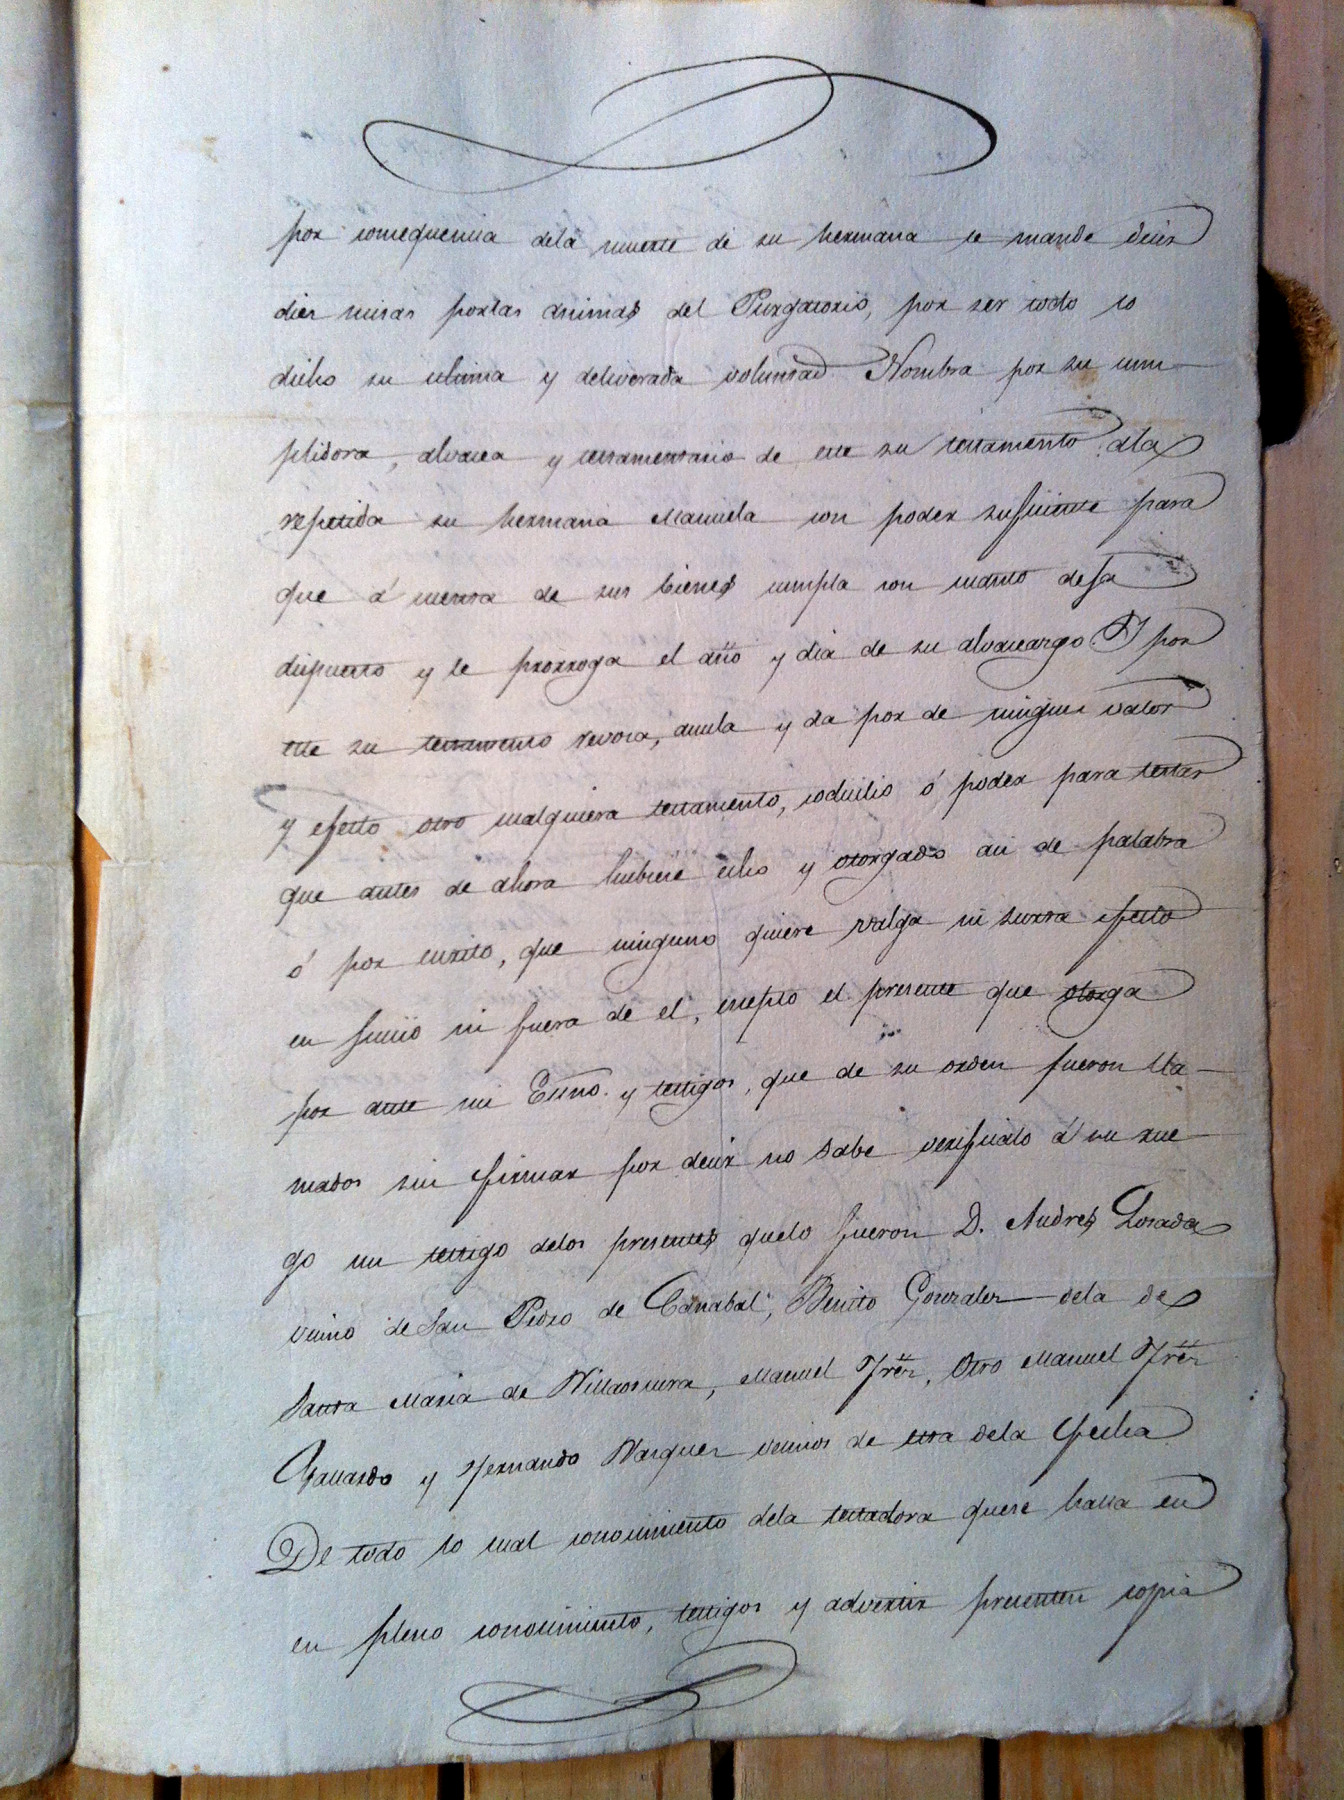 por consequencia dela muerte de su hermana se mande decir
dies misas porlas animas del Purgatorio, por ser todo lo
dicho su ultima y deliverada voluntad. Nombra por su cum-
plidora, alvacea y testamentario de este su testamento ala
repetida su hermana Manuela con poder suficiente para
que á cuenta de sus bienes cumpla con cuanto deja
dispuesto y le prorroga el año y dia de su alvaceargo. Y por
este su testamento revoca, anula y da por de ningun valor
y efecto otro cualquiera testamento, codicilio ó poder para testar
que antes de ahora hubiese echo y otorgado asi de palabra
ó por escrito, que ninguno quiere valga ni surta efecto
en juicio ni fuera de el, escepto el presente que otorga
por ante mi Essno. y testigos, que de su orden fueron lla-
mados sin firmar por decir no sabe verificalo á su rue-
go un testigo delos presentes quelo fueron D. Andres Losada
vecino de San Pedro de Canabal, Benito Gonzalez dela de
Santa Maria de Villaoscura, Manuel Frez, Otro Manuel Frez
Gallardo y Fernando Vazquez vecinos de esta dela fecha
De todo lo cual conocimiento dela testadora quese halla en
en pleno conocimiento, testigos y advertir presenten copia